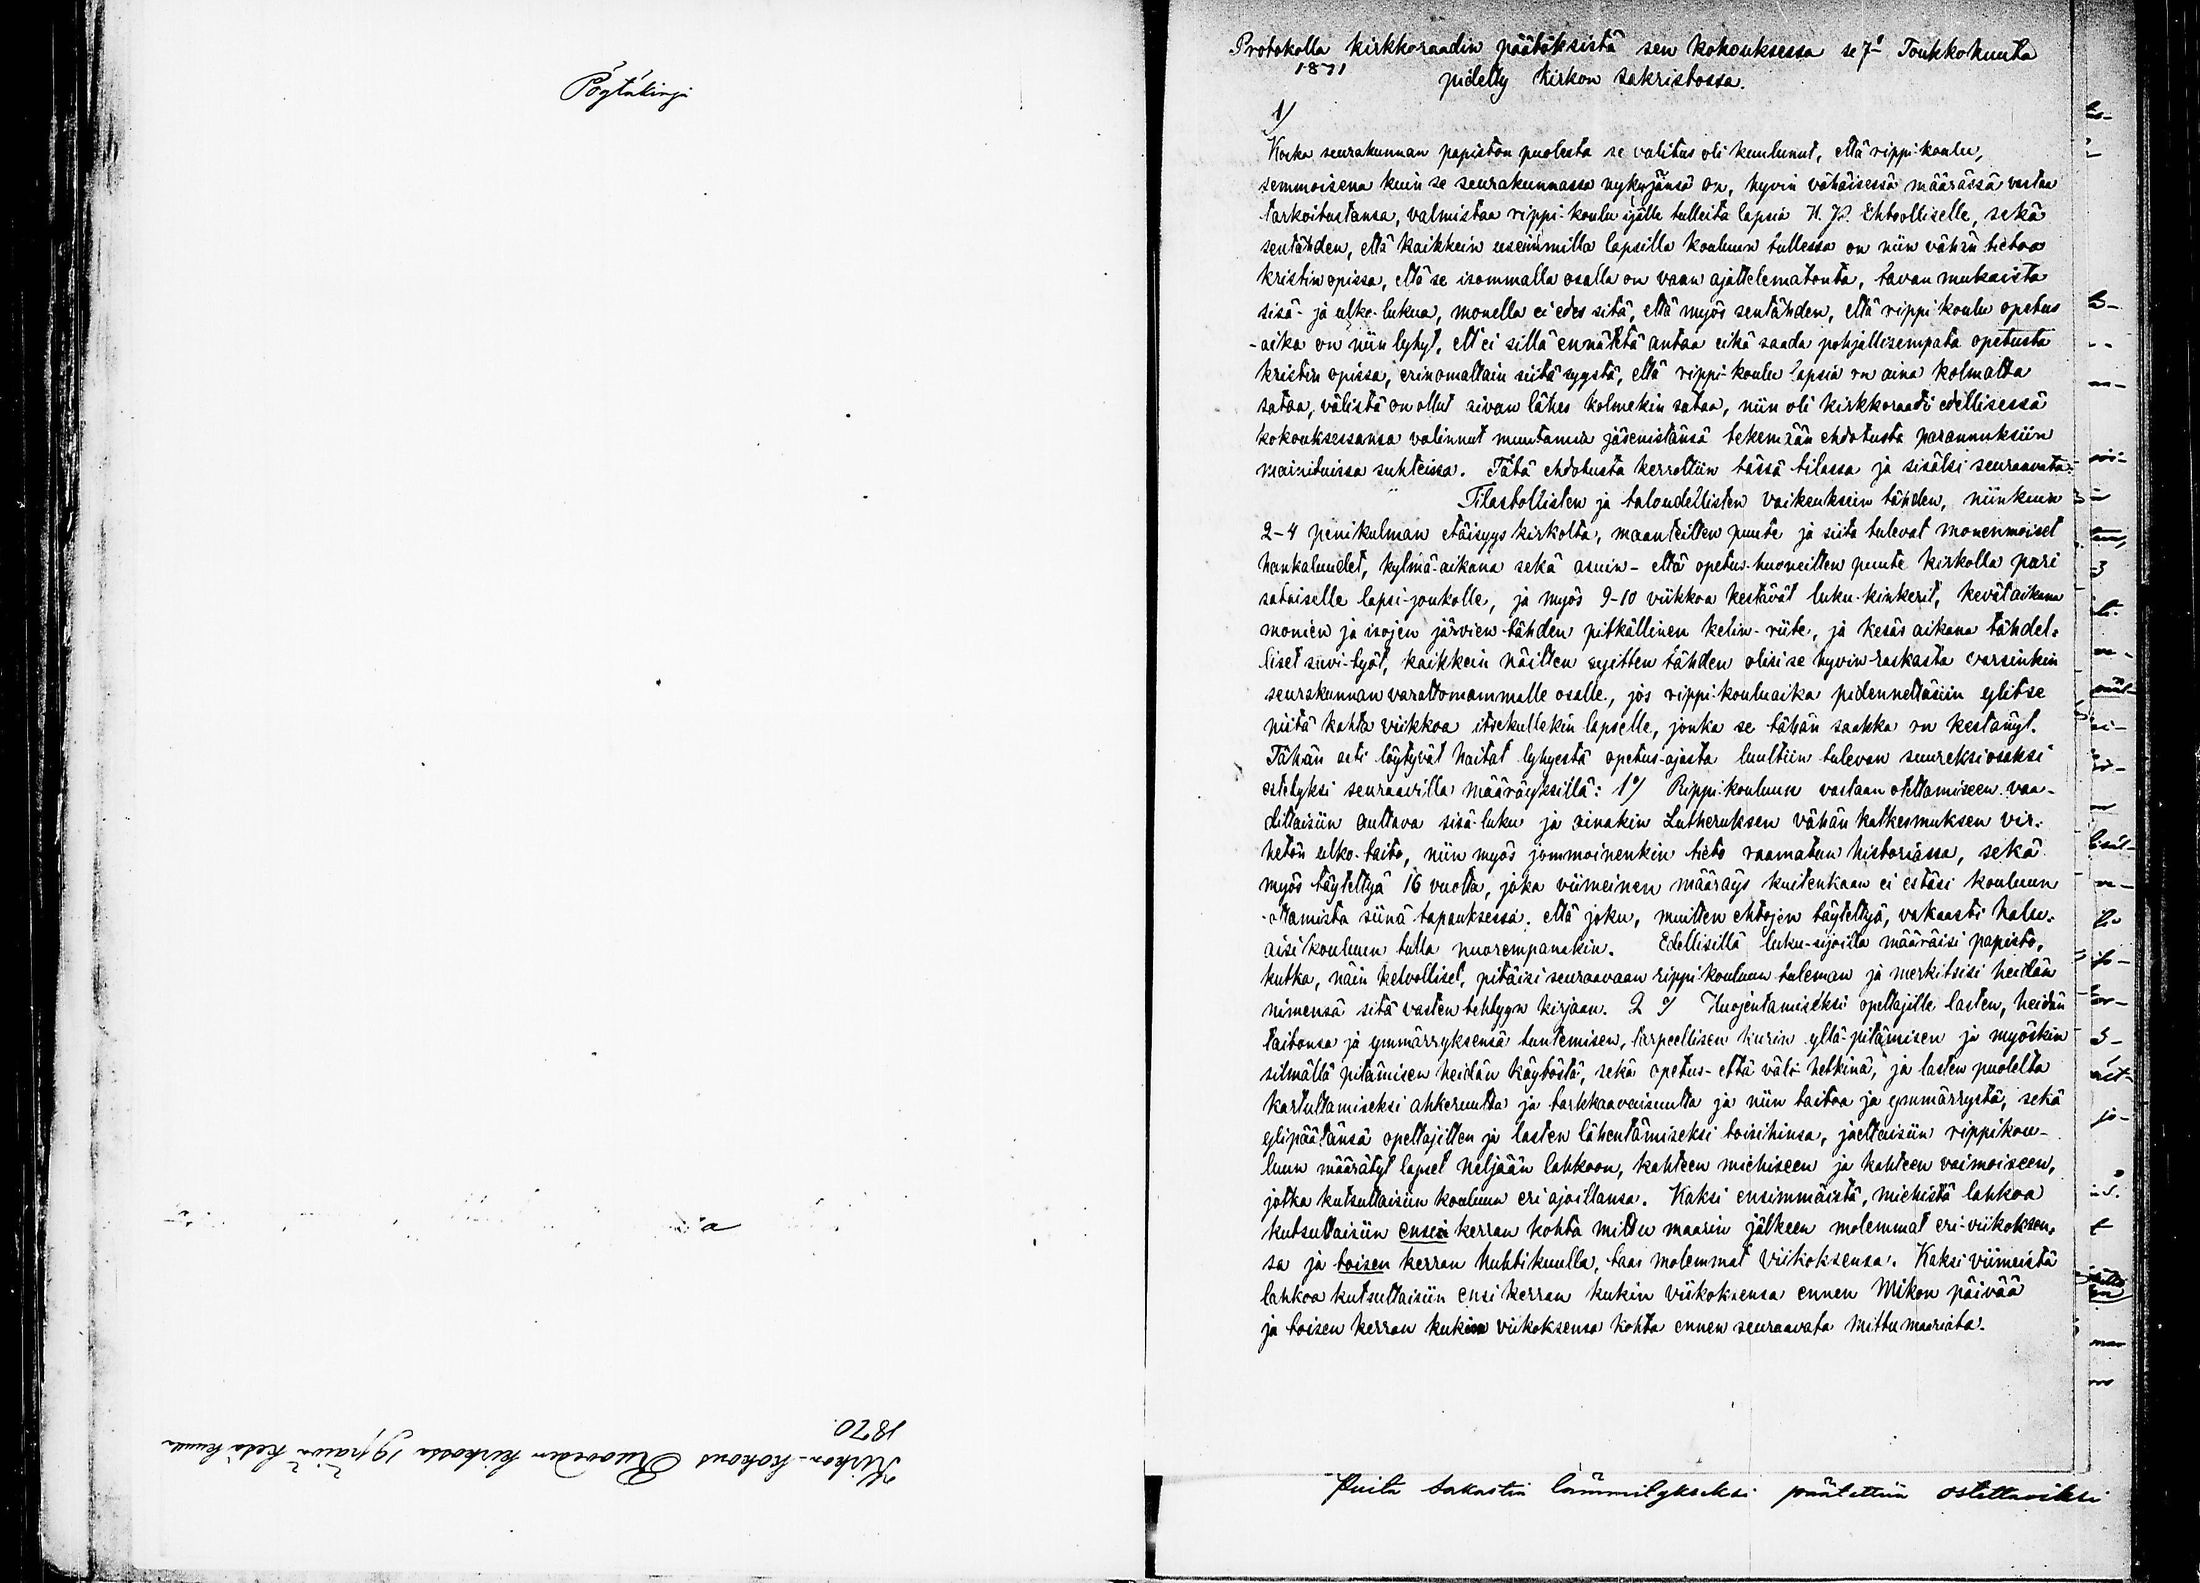 Pöytäkirja
Kirkon-kokous Ruoveden kirkossa 19 päivä kesä kuun
1870.
Protokolla kirkkoraadin päätöksistä sen kokouksessa se 7:s Toukkokuuta
1871 pidetty kirkon sakristossa.
1/
Koska seurakunnan papiston puolesta se valitus oli kuulunut, että rippi-koulu,
semmoisena kuin se seurakunnassa nykyjänsä on, hyvin vähäisessä määrässä vastaa
tarkoitustansa, valmistaa rippi-koulu ijälle tulleita lapsia H. P. Ehtoolliselle, sekä
sentähden, että kaikkein useimmilla lapsilla kouluun tullessa on niin vähän tietoa
kristin opissa, että se isommalla osalla on vaan ajattelematonta, tavan mukaista
sisä- ja ulko-lukua, monella ei edes sitä, että myös sentähden, että rippi koulu opetus
-aika on niin lyhyt, ett'ei sillä ennätetä antaa eikä saada pohjallisempata opetusta
kristin opissa, erinomattain siitä syystä, että rippi-koulu lapsia on aina kolmatta
sataa, välistä on ollut aivan lähes kolmekin sataa, niin oli kirkkoraadi edellisessä
kokouksessansa valinnut muutamia jäsenistänsä tekemään ehdotusta parannuksiin
mainituissa suhteissa. Tätä ehdotusta kerrottiin tässä tilassa ja sisälsi seuraavata:
Tilastollisten ja taloudellisten vaikeuksein tähden, niinkuin
2-4 penikulman etäisyys kirkolta, maanteitten puute ja siitä tulevat monenmoiset
hankaluudet, kylmä-aikana sekä asuin- että opetus-huoneitten puute kirkolla pari
sataiselle lapsi-joukolle, ja myös 9-10 viikkoa kestävät luku-kinkerit, kevätaikana
monien ja isojen järvien tähden pitkällinen kelin-riite, ja kesäs aikana tähdel-
liset suvi-työt, kaikkein näitten syitten tähden olisi se hyvin raskasta varsinkin
seurakunnan varattomammalle osalle, jos rippi-kouluaika pidennettäisiin ylitse
niitä kahta viikkoa itsekullekin lapselle, jonka se tähän saakka on kestänyt.
Tähän asti löytyvät haitat lyhyestä opetus-ajasta luultiin tulevan suureksi osaksi
estetyksi seuraavilla määräyksillä: 1:o/ Rippi-kouluun vastaan otettamiseen vaa-
dittaisiin auttava sisä-luku ja ainakin Lutheruksen vähän katkesmuksen vir-
hetön ulko-taito, niin myös jommoinenkin tieto raamatun historiassa, sekä
myös täytettyä 16 vuotta, joka viimeinen määräys kuitenkaan ei estäsi kouluun
-ottamista siinä tapauksessa, että joku, muitten ehtojen täytettyä, vakaasti halu-
aisi kouluun tulla nuorempanakin. Edellisillä luku-sijoilla määräisi papisto,
kutka, näin kelvolliset, pitäisi seuraavaan rippi kouluun tuleman ja merkitsisi heidän
nimensä sitä vasten tehtyyn kirjaan. 2:o/ Huojentamiseksi opettajille lasten, heidän
taitonsa ja ymmärryksensä tuntemisen, tarpeellisen kurin yllä-pitämisen ja myöskin
silmällä pitämisen heidän käytöstä, sekä opetus- että väli-hetkinä, ja lasten puolelta
kartuttamiseksi ahkeruutta ja tarkkaavaisuutta ja niin taitoa ja ymmärrystä, sekä
ylipäätänsä opettajitten ja lasten lähentämiseksi toisihinsa, jaettaisiin rippikou-
luun määrätyt lapset neljään lahkoon, kahteen miehiseen ja kahteen vaimoiseen,
jotka kutsuttaisiin kouluun eri ajoillansa. Kaksi ensimmäistä, miehistä lahkoa
kutsuttaisiin ensin kerran kohta mittu maarin jälkeen molemmat eri-viikoksen-
sa ja toisen kerran huhtikuulla, taas molemmat viikoksensa. Kaksi viimeistä
lahkoa kutsuttaisiin ensi kerran kukin viikoksensa ennen Mikon päivää
ja toisen kerran kukin viikoksensa kohta ennen seuraavata mittumaariata.
Puita sakastin lämmitykseksi päätettiin ostettaviksi